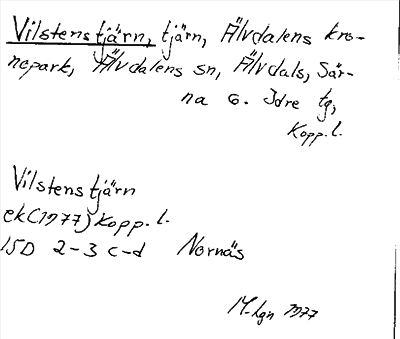 Vilstenstjärn, tjärn, Älvdalens kro-
nepark, Älvdalens sn, Älvdals, Sär-
na o. Idre tg,
Kopp. l.
Vilstenstjärn
ek (1977) Kopp. l.
15D 2-3 c-d Nornäs
M-lgn 1977